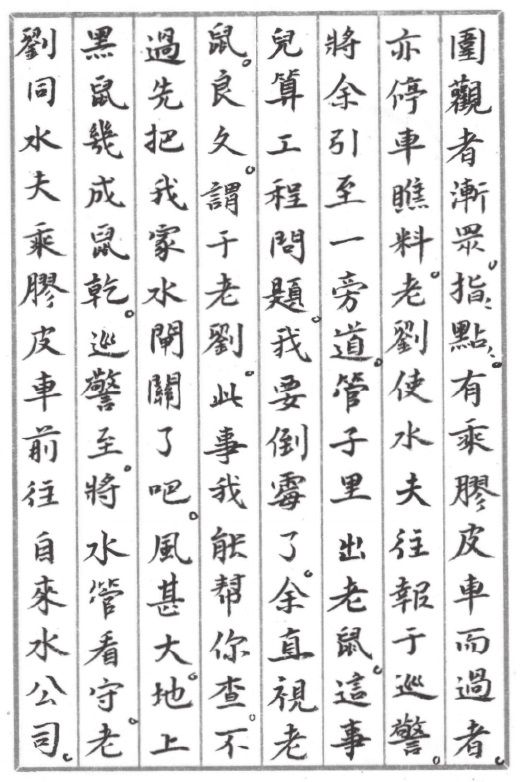 圍觀者漸眾。指〻點〻。有乘膠皮車而過者。
亦停車瞧料。老劉使水夫往報于巡警。
將余引至一旁道。管子里出老鼠。這事
兒算工程問題。我要倒霉了。余直視老
鼠。良久。謂于老劉。此事我能幫你查。不
過先把我家水閘關了吧。風甚大。地上
黑鼠幾成鼠乾。巡警至。將水管看守。老
劉同水夫乘膠皮車前往自來水公司。